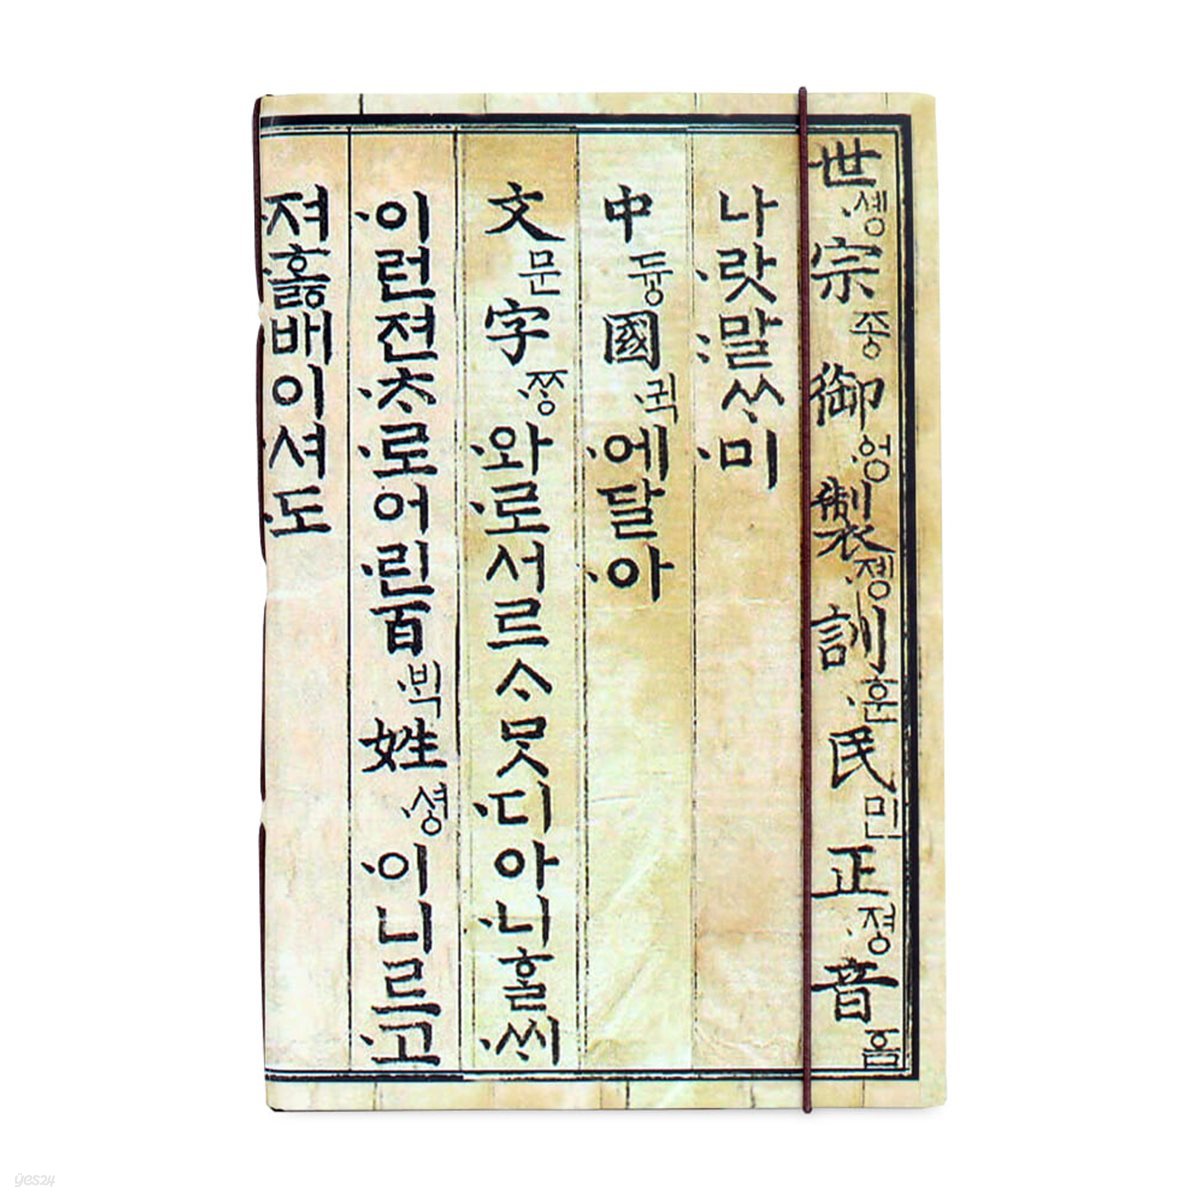 世·솅宗종御·엉製·졩訓·훈民민正·졍音ᅙᅳᆷ
나·랏:말ᄊᆞ·미
中듀ᇰ國·귁·에달·아
文문字·ᄍᆞᆼ·와·로서르ᄉᆞᄆᆞᆺ·디아·니ᄒᆞᆯ·ᄊᆡ
·이런젼·ᄎᆞ·로어·린百·ᄇᆡᆨ姓·셔ᇰ·이니르·고
·져·호ᇙ배이·셔·도
yes24